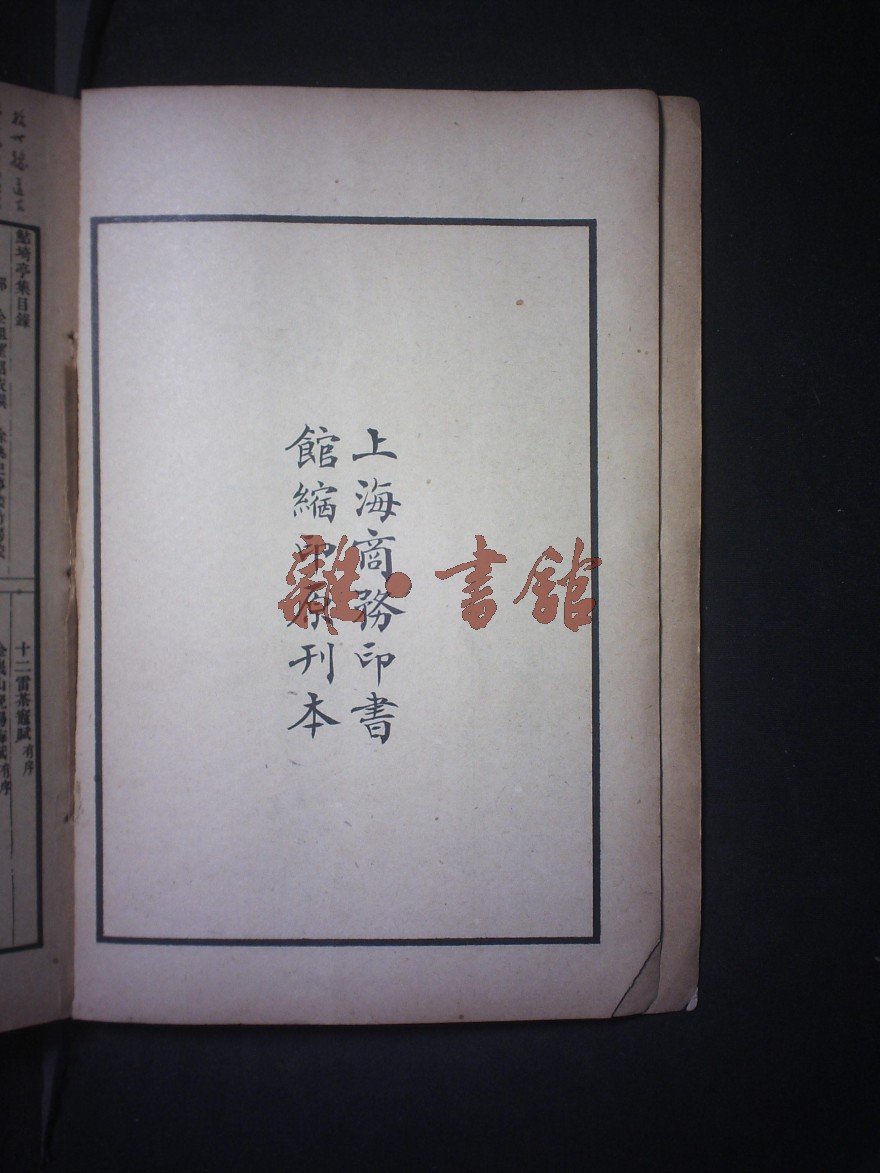 上海商務印書
館縮印原刊本
雜·書館
鮚埼亭集目錄
十二雷茶竈賦有序